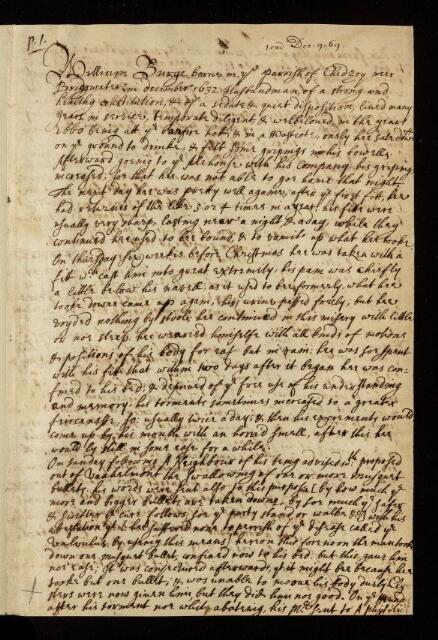 p. 1.
read Dec. 9. 69.
William Burge borne in yᵉ parrish of Chidzoy neer
Bridgwater in december 1632 Husbandman, of a strong and
healthy constitution, & of a sedate & quiet disposition, lived many
years in service, temperate diligent & welbeloved, in the yeare
being at yᵉ hot, & in a wastcote, only hee sate downe
on yᵉ ground to drinke, & felt some gripings in his bowells
Afterward goeing to yᵉ Alehouse with his Company, his griping
increased, soe that hee was not able to goe home that night
The next day hee was pretty well againe, after yᵉ first fitt, hee
had returnes of the like 3 or 4 times in a year, his fitts were
usually very sharp, lasting neer a night & a day, while they
continued hee used to bee bound, & to vomit up what hee tooke.
On thursday six weekes before Christmas hee was taken with a
fitt wᶜʰ cast him into great extremity, his paine was chiefly
a little below his navell as it used to bee formerly, what hee
tooke downe came up again, his urine passed freely, but hee
voyded nothing by stoole hee continued in this misery with little
or noe sleep, hee wearied himselfe with all kinds of motions
& positions of his body for ease but in vain; hee was soe spent
with his fitt that within two days after it began hee was con-
fined to his bed, & deprived of yᵉ free use of his understanding
and memory; his torments sometimes increased to a greater
fierceness, so: usually twice a day; & then his excrements would
come up by his mouth with an horrid smell, after this hee
would ly still in some ease for a while.
On sunday following A Neighbour of his being advised wᵗʰ proposed
out of the swallowing of one or more Musquet
bullets, his words were sent after in this proposal by how much yᵉ
more and bigger bullets are taken downe, by soe much yᵉ safer
& swifter a cure follows, soe yᵉ party stand or walke, & wᵗʰ this
hee suffered none to perrish of yᵉ disease called yᵉ
Valvulus by useing this means; hereon this forenoon the man tooke
down one musquet bullet, confined now to his bed, but this gave him
noe ease; It was conjectured afterwards, yᵗ it might bee because hee
tooke but one bullet, & was unable to moove his body duely. Cly
sters were now given him, but they did him noe good. On yᵉ munday
after his torment nor whit abateing, his sent to A